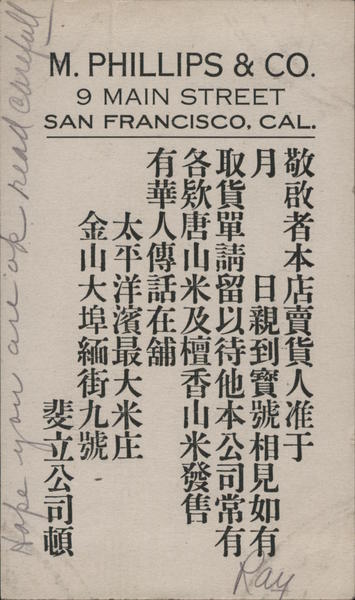 M. PHILLIPS & CO.
9 MAIN STREET
SAN FRANCISCO, CAL.
敬啟者本店賣貨人准于
月 日親到寶號相見如有
取貨單請留以待他本公司常有
各欵唐山米及檀香山米發售
有華人傳話在舖
太平洋濱最大米庄
金山大埠緬街九號
斐立公司頓
Hope you are ok read carefull
Ray